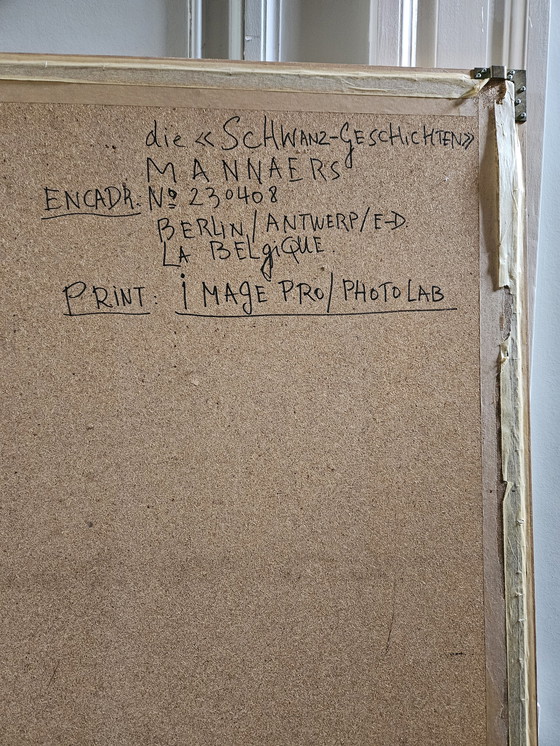 die «SCHWANZ-GESCHICHTEN»
MANNAERS
ENCADR. Nº 230408
BERLIN/ANTWERP/E-D.
LA BELgiQUE.
PRINT: iMAgE PRO/PHOTOLAB